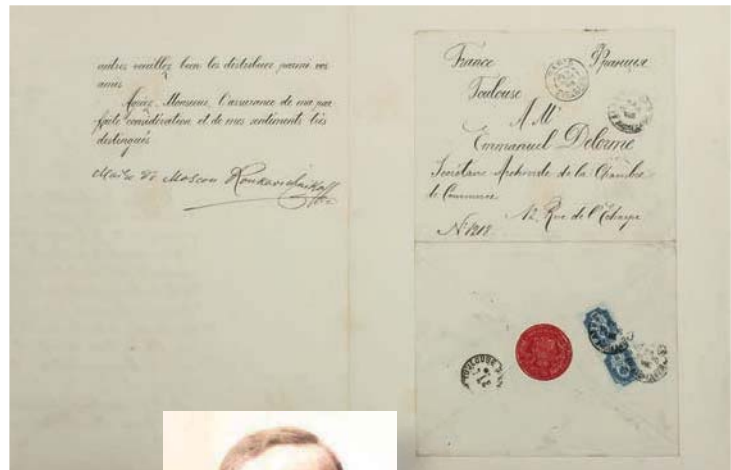 autres veuillez bien les distribuer parmi vos
amis
Agréez, Monsieur, l'assurance de ma par
faite considération et de mes sentiments très
distingués
Maire de Moscou Roukavichnikoff
France Франція
Toulouse
A Mr
Emmanuel Delorme
Secrétaire Archiviste de la Chambre
de Commerce
12, Rue de l'Echarpe
N: 1212
PARIS
TOULOUSE